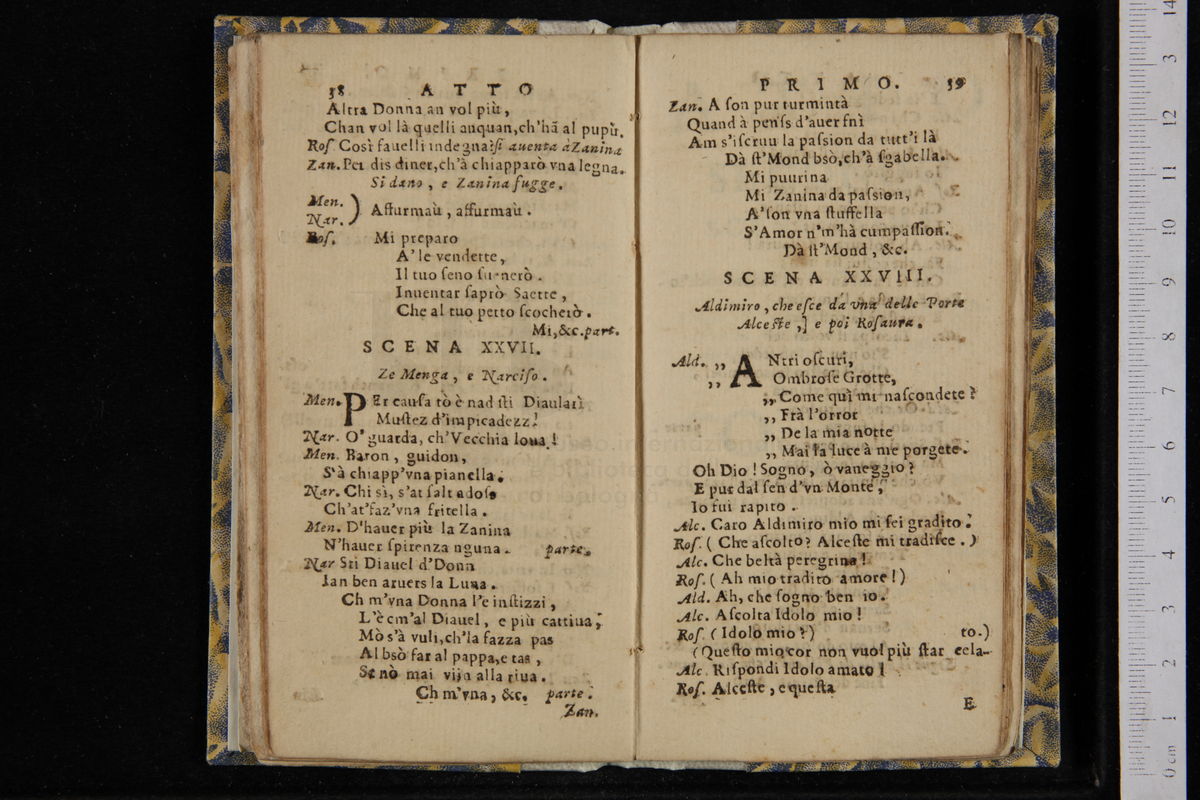 38 ATTO
Altra Donna an vol più,
Chan vol là quelli anquan, ch'hã al pupù.
Roſ Così fauelli indegna? ſi auenta à Zanina
Zan. Per dis diner, ch'à chiapparò vna legna.
Si dano, e Zanina fugge.
Men.
Nar. ) Affurmaù, affurmaù.
Roſ. Mi preparo
A' le vendette,
Il tuo ſeno ſuenerò.
Inuentar ſaprò Saette,
Che al tuo petto ſcocherò.
Mi, &c. part.
SCENA XXVII.
Ze Menga, e Narciſo.
Men. PEr cauſa tò è nad ſti Diaularì
Muſtez d'impicadezz!
Nar. O' guarda, ch'Vecchia loua!
Men. Baron, guidon,
S'à chiapp'vna pianella.
Nar. Chi sì, s'at ſalt adoſſ
Ch'at'faz'vna fritella.
Men. D'hauer più la Zanina
N'hauer ſpirenza nguna. parte.
Nar Sti Diauel d'Donn
Ian ben aruers la Luna.
Ch m'vna Donna l'e inſtizzi,
L'è cm'al Diauel, e più cattiua;
Mò s'à vuli, ch'la fazza pas
Al bsò far al pappa, e tas,
Se nò mai vija alla riua.
Ch m'vna, &c. parte.
Zan.
PRIMO. 39
Zan. A ſon pur turmintà
Quand à penſs d'auer fnì
Am s'iſcruu la paſsion da tutt'i là
Dà ſt'Mond bsò, ch'à ſgabella.
Mi puurina
Mi Zanina da paſsion,
A'ſon vna ſtuffella
S'Amor n'm'hà cumpaſſion.
Dà ſt'Mond, &c.
SCENA XXVIII.
Aldimiro, che eſce da vna delle Porte
Alceſte,] e poi Roſaura.
Ald. ,, ANtri oſcuri,
,, Ombroſe Grotte,
,, Come quì mi naſcondete?
,, Frà l'orror
,, De la mia notte
,, Mai la luce à me porgete.
Oh Dio! Sogno, ò vaneggio?
E pur dal ſen d'vn Monte,
Io fui rapito.
Alc. Caro Aldimiro mio mi ſei gradito.
Roſ. (Che aſcolto? Alceſte mi tradiſce.)
Alc. Che beltà peregrina!
Roſ. (Ah mio tradito amore!)
Ald. Ah, che ſogno ben io.
Alc. Aſcolta Idolo mio!
Roſ. (Idolo mio?) to.)
(Queſto mio cor non vuol più ſtar cela-
Alc. Riſpondi Idolo amato!
Roſ. Alceſte, e queſta
E